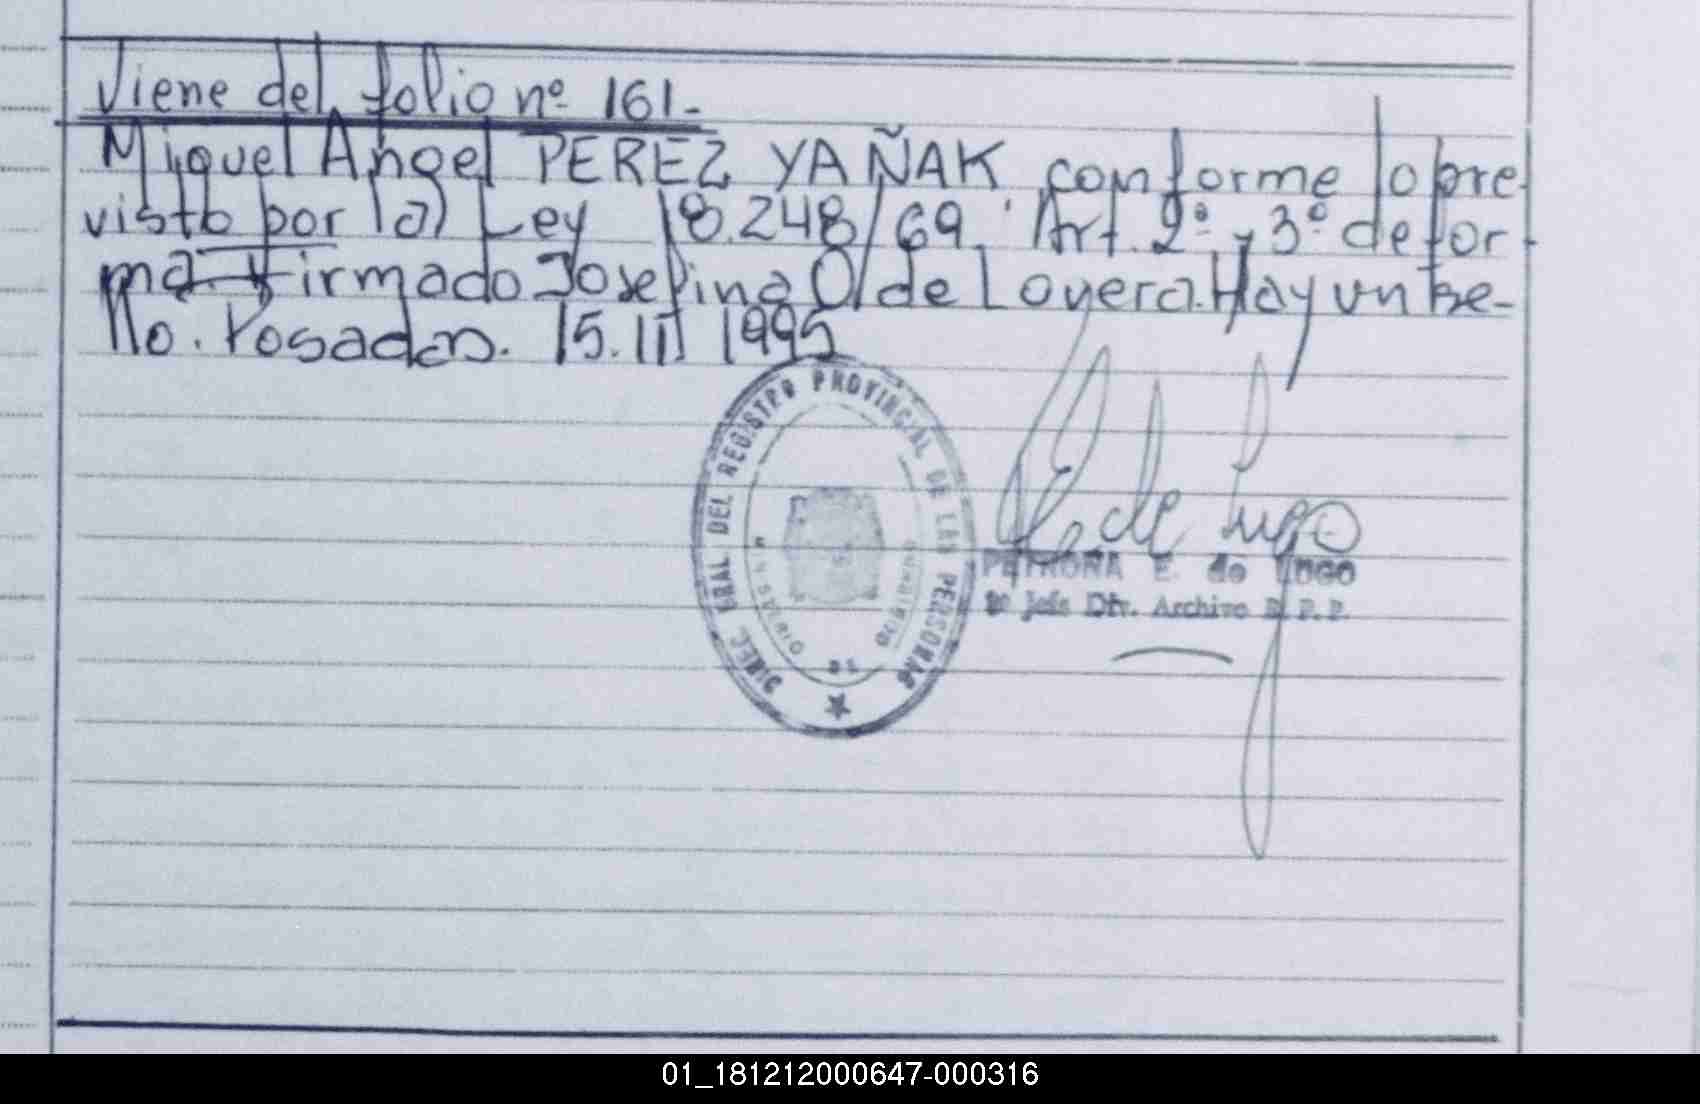 Viene del folio nº 161.-
Miguel Angel PEREZ YAÑAK conforme lo pre-
visto por la Ley 18.248/69. Art. 2º y 3º de for-
ma. Firmado Josefina O. de Lovera. Hay un se-
llo. Posadas. 15.III 1995
DIREC. GRAL DEL REGISTRO PROVINCIAL DE LAS PERSONAS
R. de Lugo
PETRONA E. de LUGO
Jefe Div. Archivo R. P. P.
01_181212000647-000316